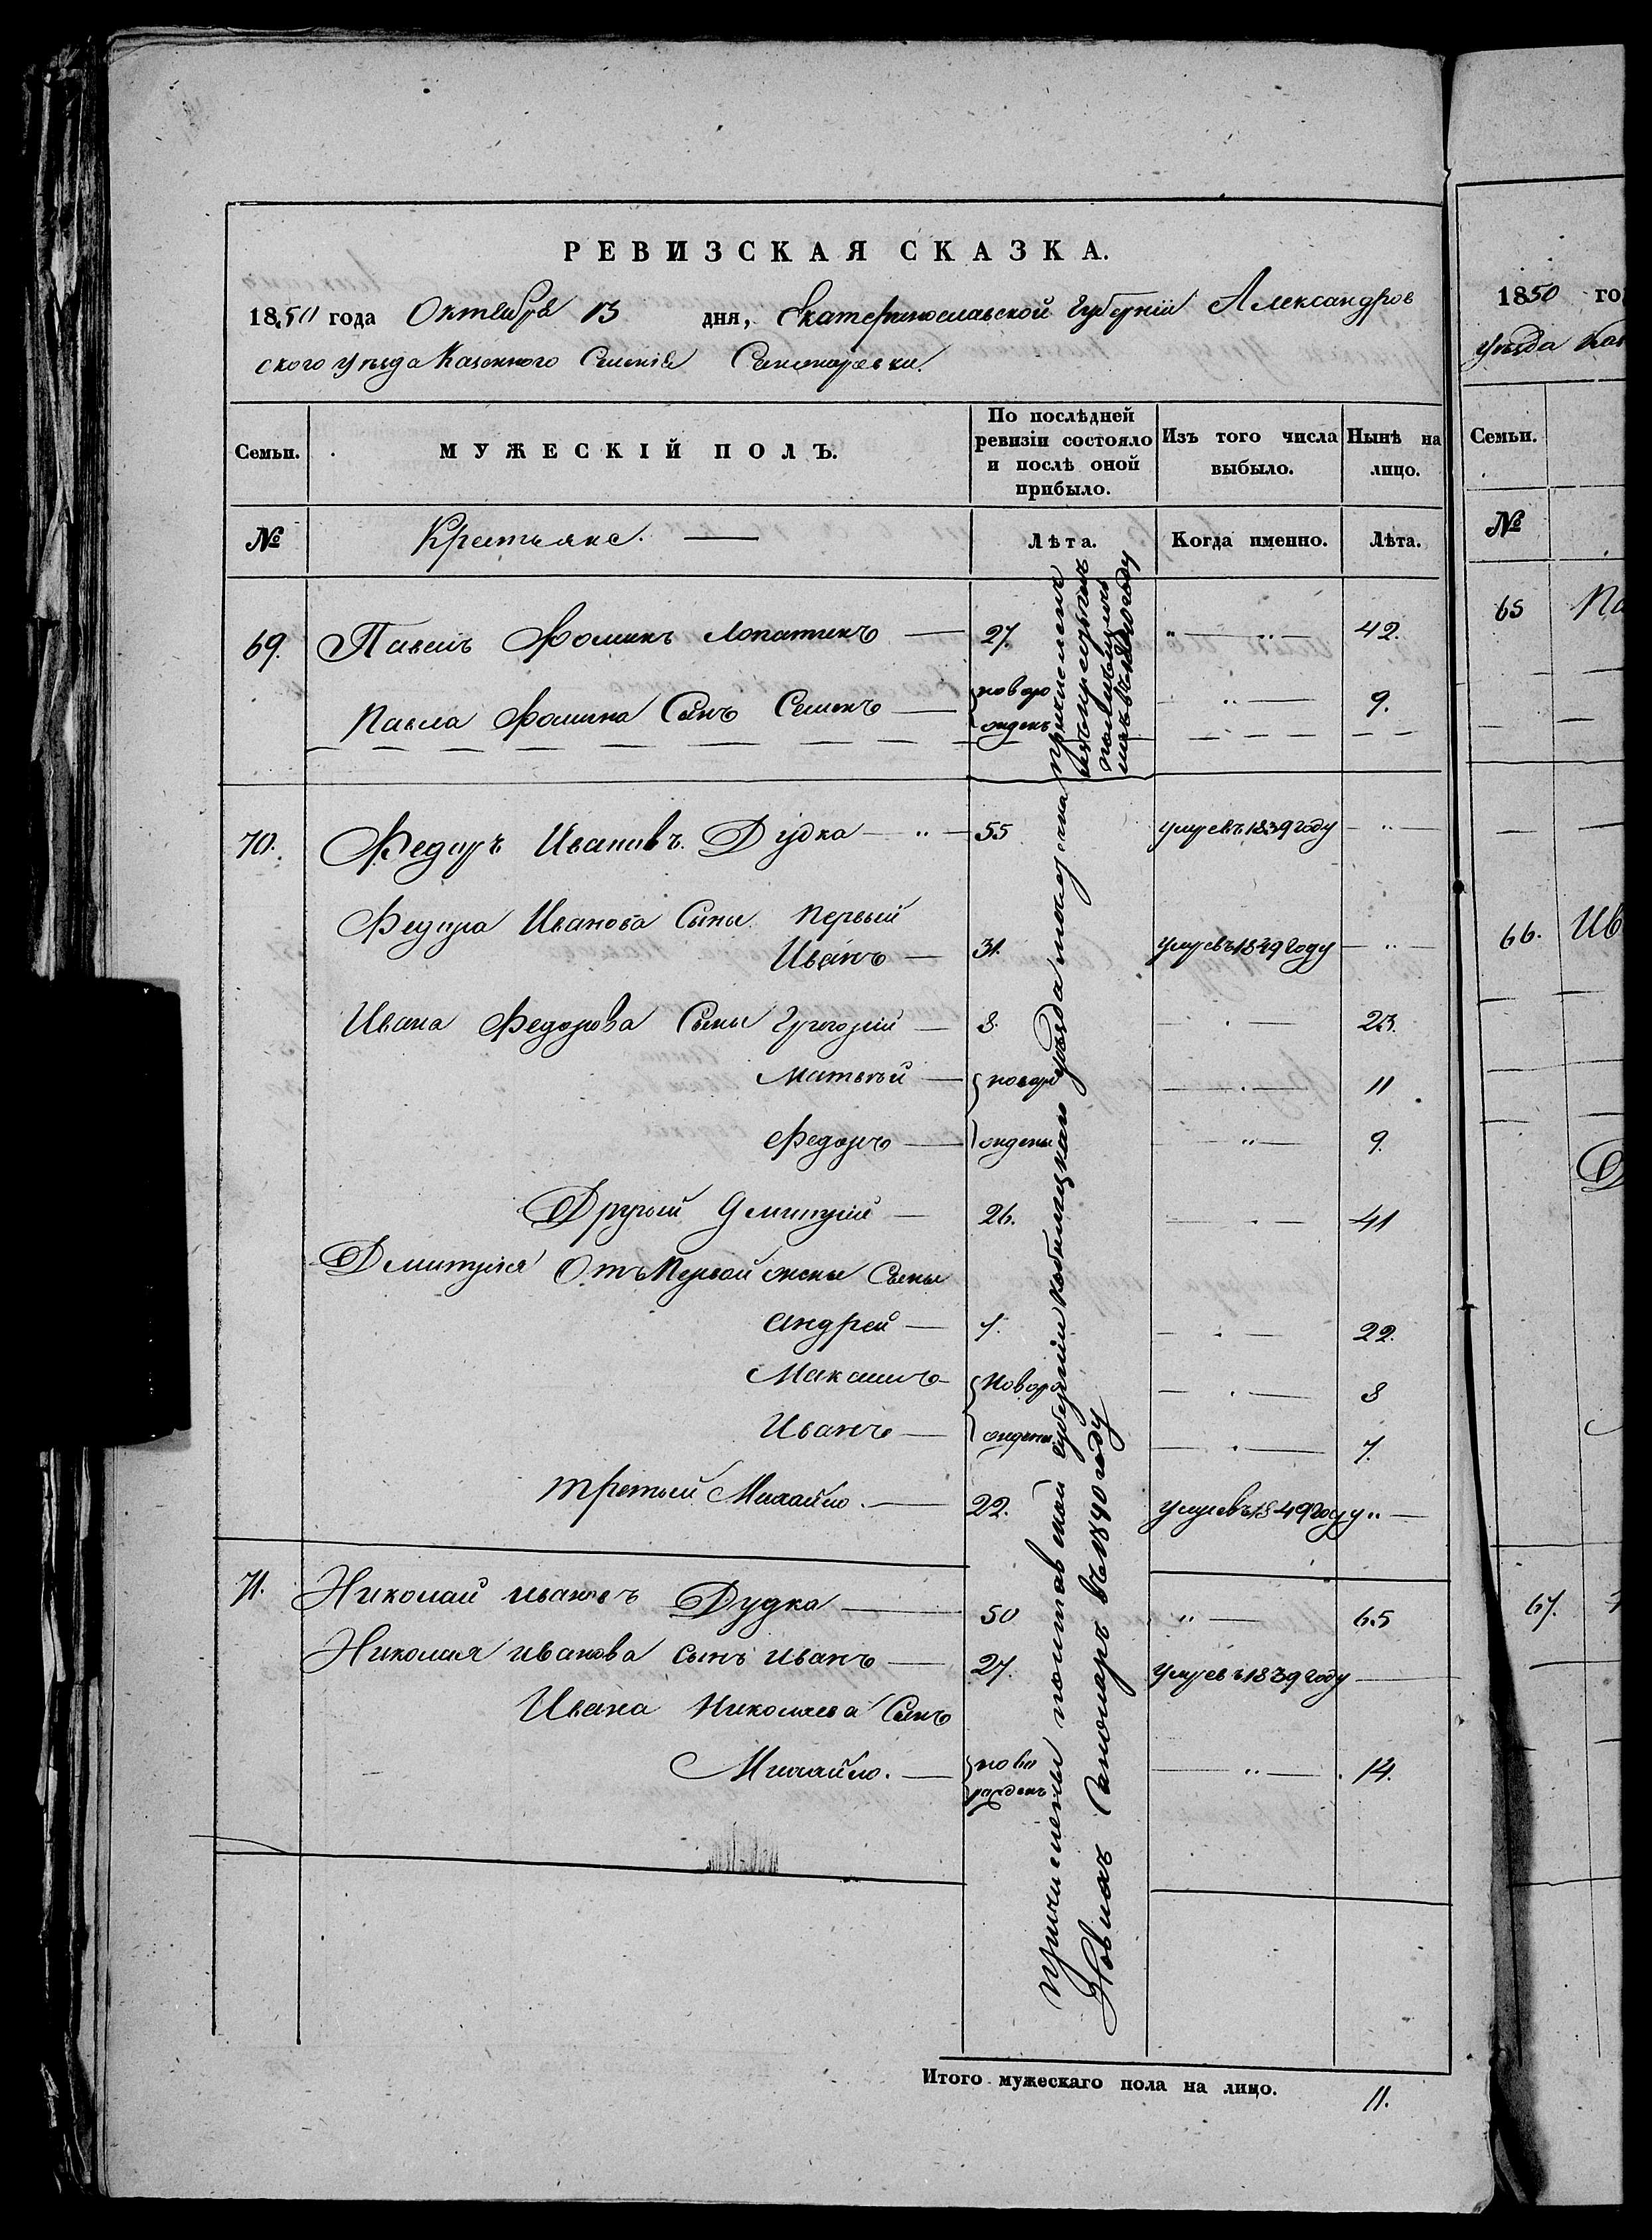 РЕВИЗСКАЯ СКАЗКА.
1850 года Октября 13 дня, Екатеринославской Губерніи Александров
ского уѣзда Казенного Селенія
Семьи.
МУЖЕСКІЙ ПОЛЪ.
По послѣдней ревизіи состояло и послѣ оной прибыло.
Изъ того числа выбыло.
Нынѣ на лицо.
№
Крестьяне.
Лѣта.
Когда именно.
Лѣта.
69. Павелъ Фоминъ Лопатинъ — 27. 42.
Павла Фомина Сынъ Семенъ — новорожденъ 9.
70. Федоръ Ивановъ Дудка — 55 умре въ 1839 году
Федора Иванова Сыны Первый
Иванъ — 31. умре въ 1849 году
Ивана Федорова Сыны Григорій — 8. 23.
Матвѣй — новоро 11
Федоръ — ждены 9.
Другой Дмитрій — 26. 41
Дмитрія Отъ Первой жены Сыны
Андрей — 7. 22.
Максимъ — новоро 8
Иванъ — ждены 7.
третій Михайло. — 22. умре въ 1849 году
71. Николай Ивановъ Дудка — 50 65
Николая Иванова сынъ Иванъ — 27. умре въ 1839 году
Ивана Николаева Сынъ
Михайло. — новорожденъ 14.
причислены полтавской губерніи кобиляцкаго уѣзда
въ 1840 году
Итого мужескаго пола на лицо. 11.
1850 го
уѣзда Каз
Семьи.
№
65 Па
66. Ив
67.